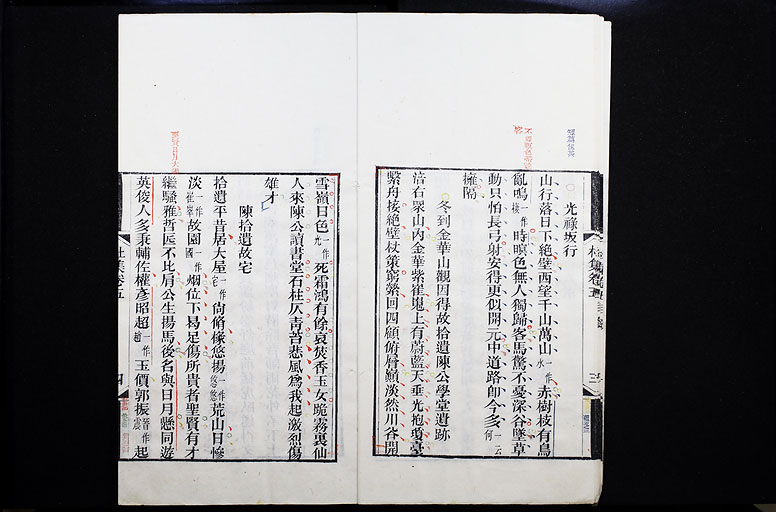 光祿坂行
山行落日下絕壁西望千山萬山一作水赤樹枝有鳥
亂鳴一作棲時暝色無人獨歸客馬驚不憂深谷墜草
動只怕長弓射安得更似開元中道路即今多一云何
擁隔
冬到金華山觀因得故拾遺陳公學堂遺跡
涪右眾山內金華紫崔嵬上有蔚藍天垂光抱瓊臺
繫舟接絕壁杖策窮縈回四顧俯層巔淡然川谷開
雪嶺日色死霜鴻有餘哀焚香玉女跪霧裏仙
人來陳公讀書堂石柱仄青苔悲風為我起激烈傷
雄才
陳拾遺故宅
拾遺平昔居大屋一作宅尚脩椽悠揚荒山日慘
淡故園一作國煙位下曷足傷所貴者聖賢有才
繼騷雅哲匠不比肩公生揚馬後名與日月懸同遊
英俊人多秉輔佐權彥昭超一作趙玉價郭振一作震起
杜集卷五
三
杜集卷五
四